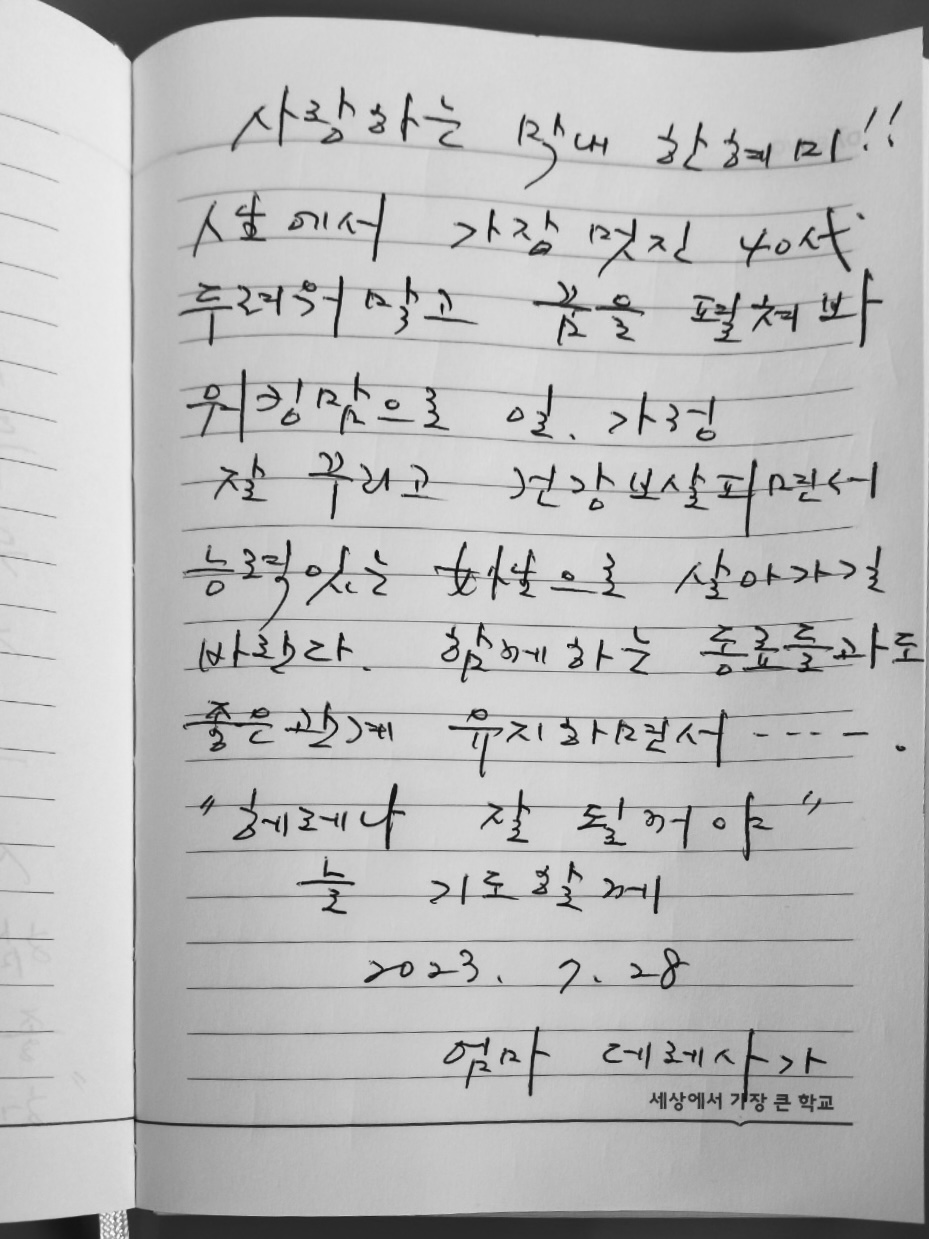 사랑하는 막내 한혜미!!
인생에서 가장 멋진 40세
두려워 말고 꿈을 펼쳐 봐
위킹맘으로 일. 가정
잘 꾸리고 건강 보살피면서
능력있는 삶으로 살아가길
바란다. 함께하는 동료들과도
좋은 관계 유지하면서 ---- .
"헬레나 잘 될꺼야"
늘 기도할께
2023. 7. 28
엄마 데레사가
세상에서 가장 큰 학교